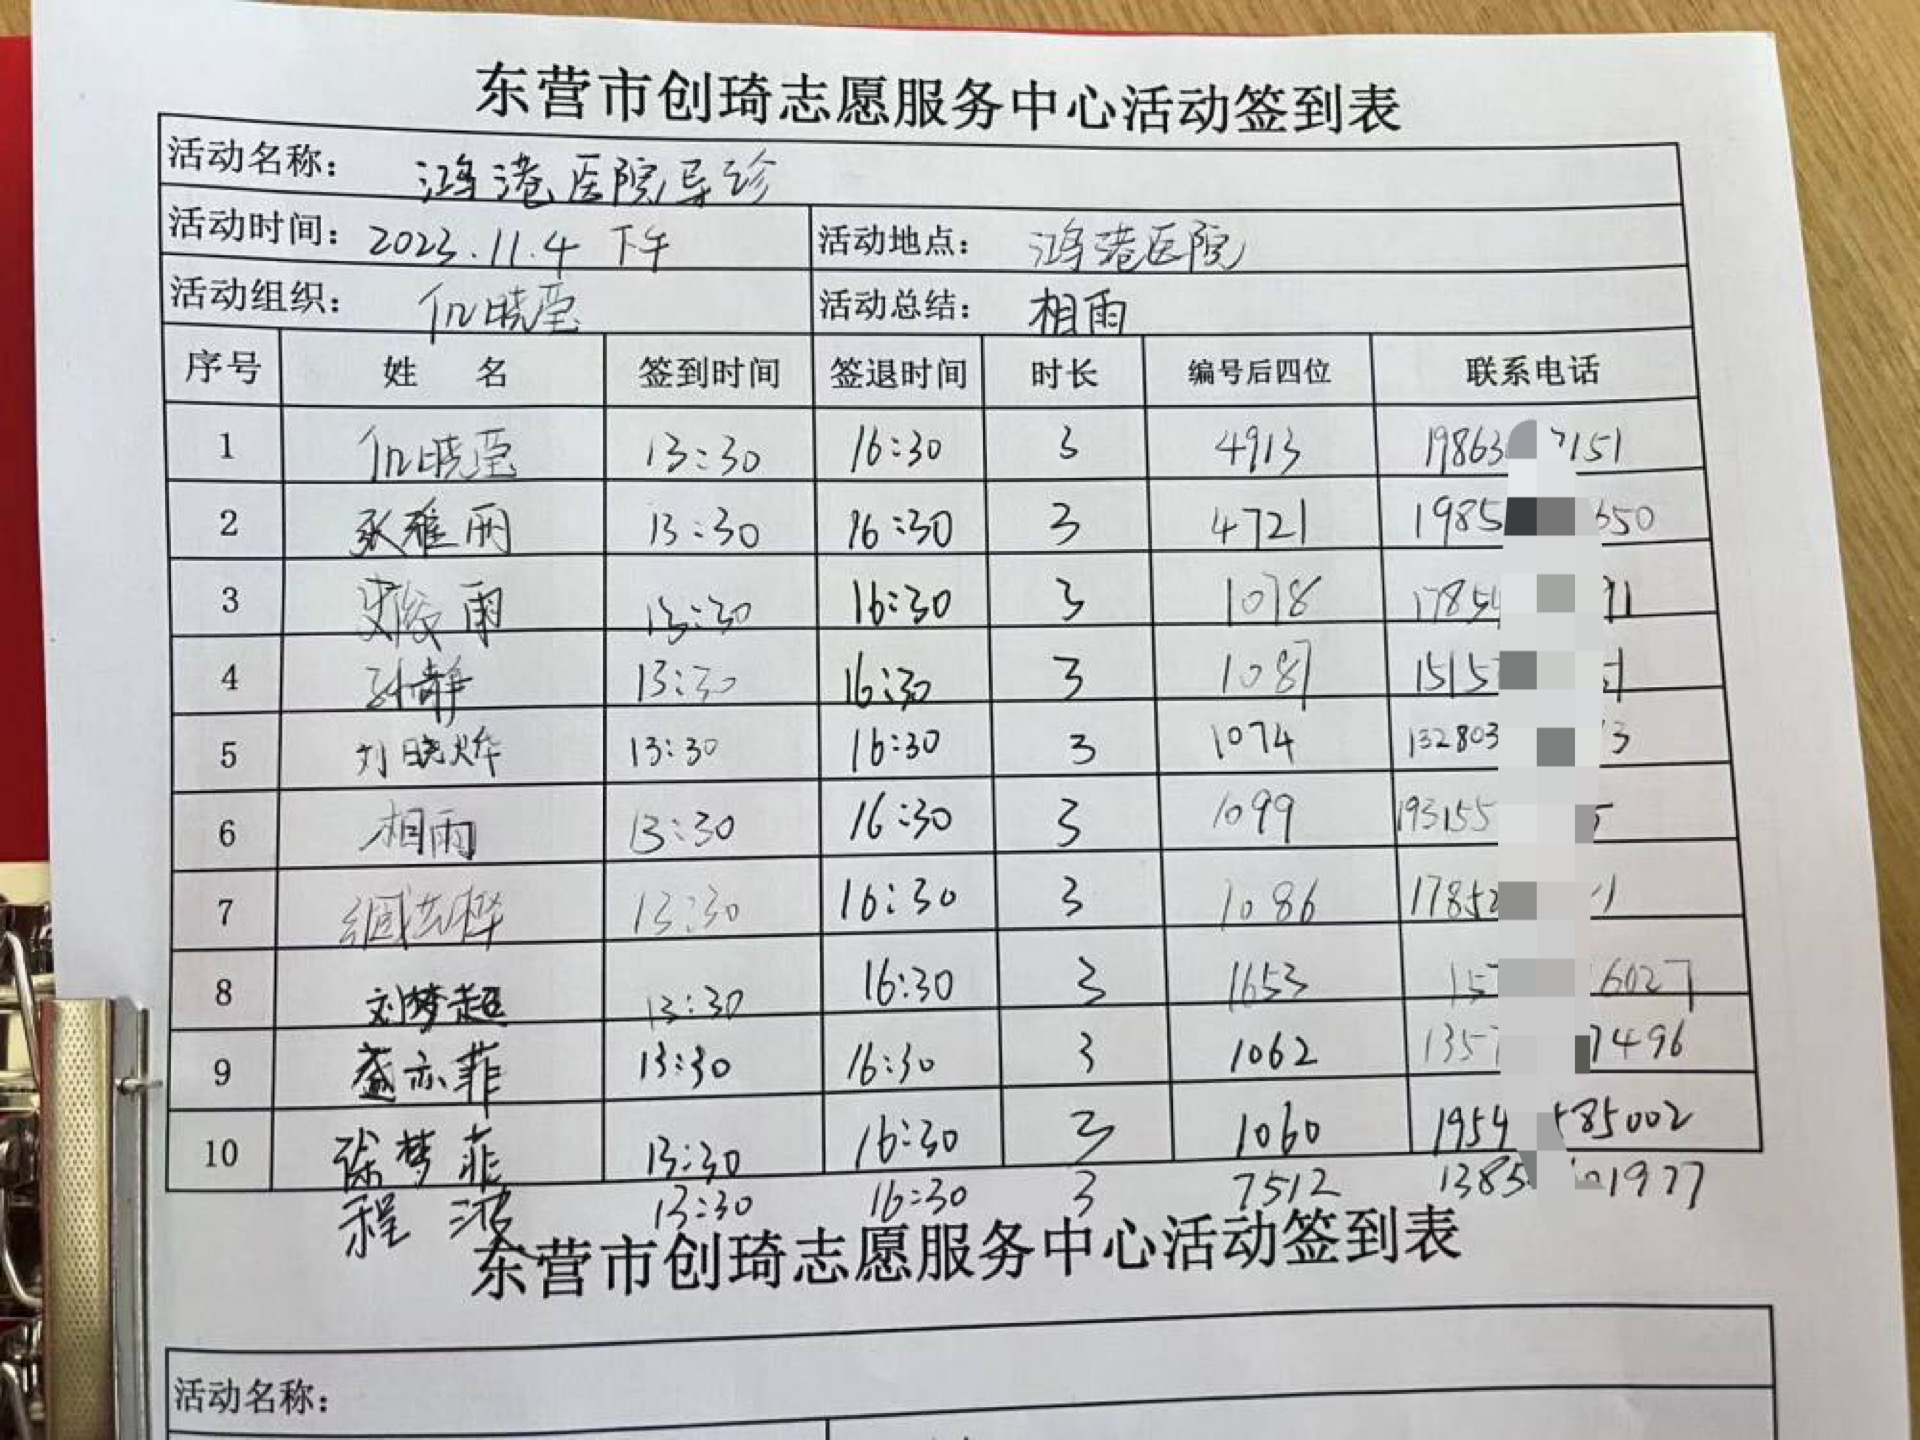 东营市创琦志愿服务中心活动签到表
活动名称： 鸿港医院导诊
活动时间： 2023.11.4 下午 活动地点： 鸿港医院
活动组织： 晓莹 活动总结： 相雨
序号 姓名 签到时间 签退时间 时长 编号后四位 联系电话
1 晓莹 13:30 16:30 3 4913 19863 7151
2 张雅丽 13:30 16:30 3 4721 1985 650
3 雨 13:30 16:30 3 1078 1785 91
4 孙静 13:30 16:30 3 1087 1515 51
5 刘晓烨 13:30 16:30 3 1074 132803 3
6 相雨 13:30 16:30 3 1099 193155 5
7 13:30 16:30 3 1086 17852 1
8 刘梦超 13:30 16:30 3 1653 15 6027
9 盖亦菲 13:30 16:30 3 1062 1357 7496
10 徐梦菲 13:30 16:30 3 1060 1954 585002
程波 13:30 16:30 3 7512 1385 01977
东营市创琦志愿服务中心活动签到表
活动名称：